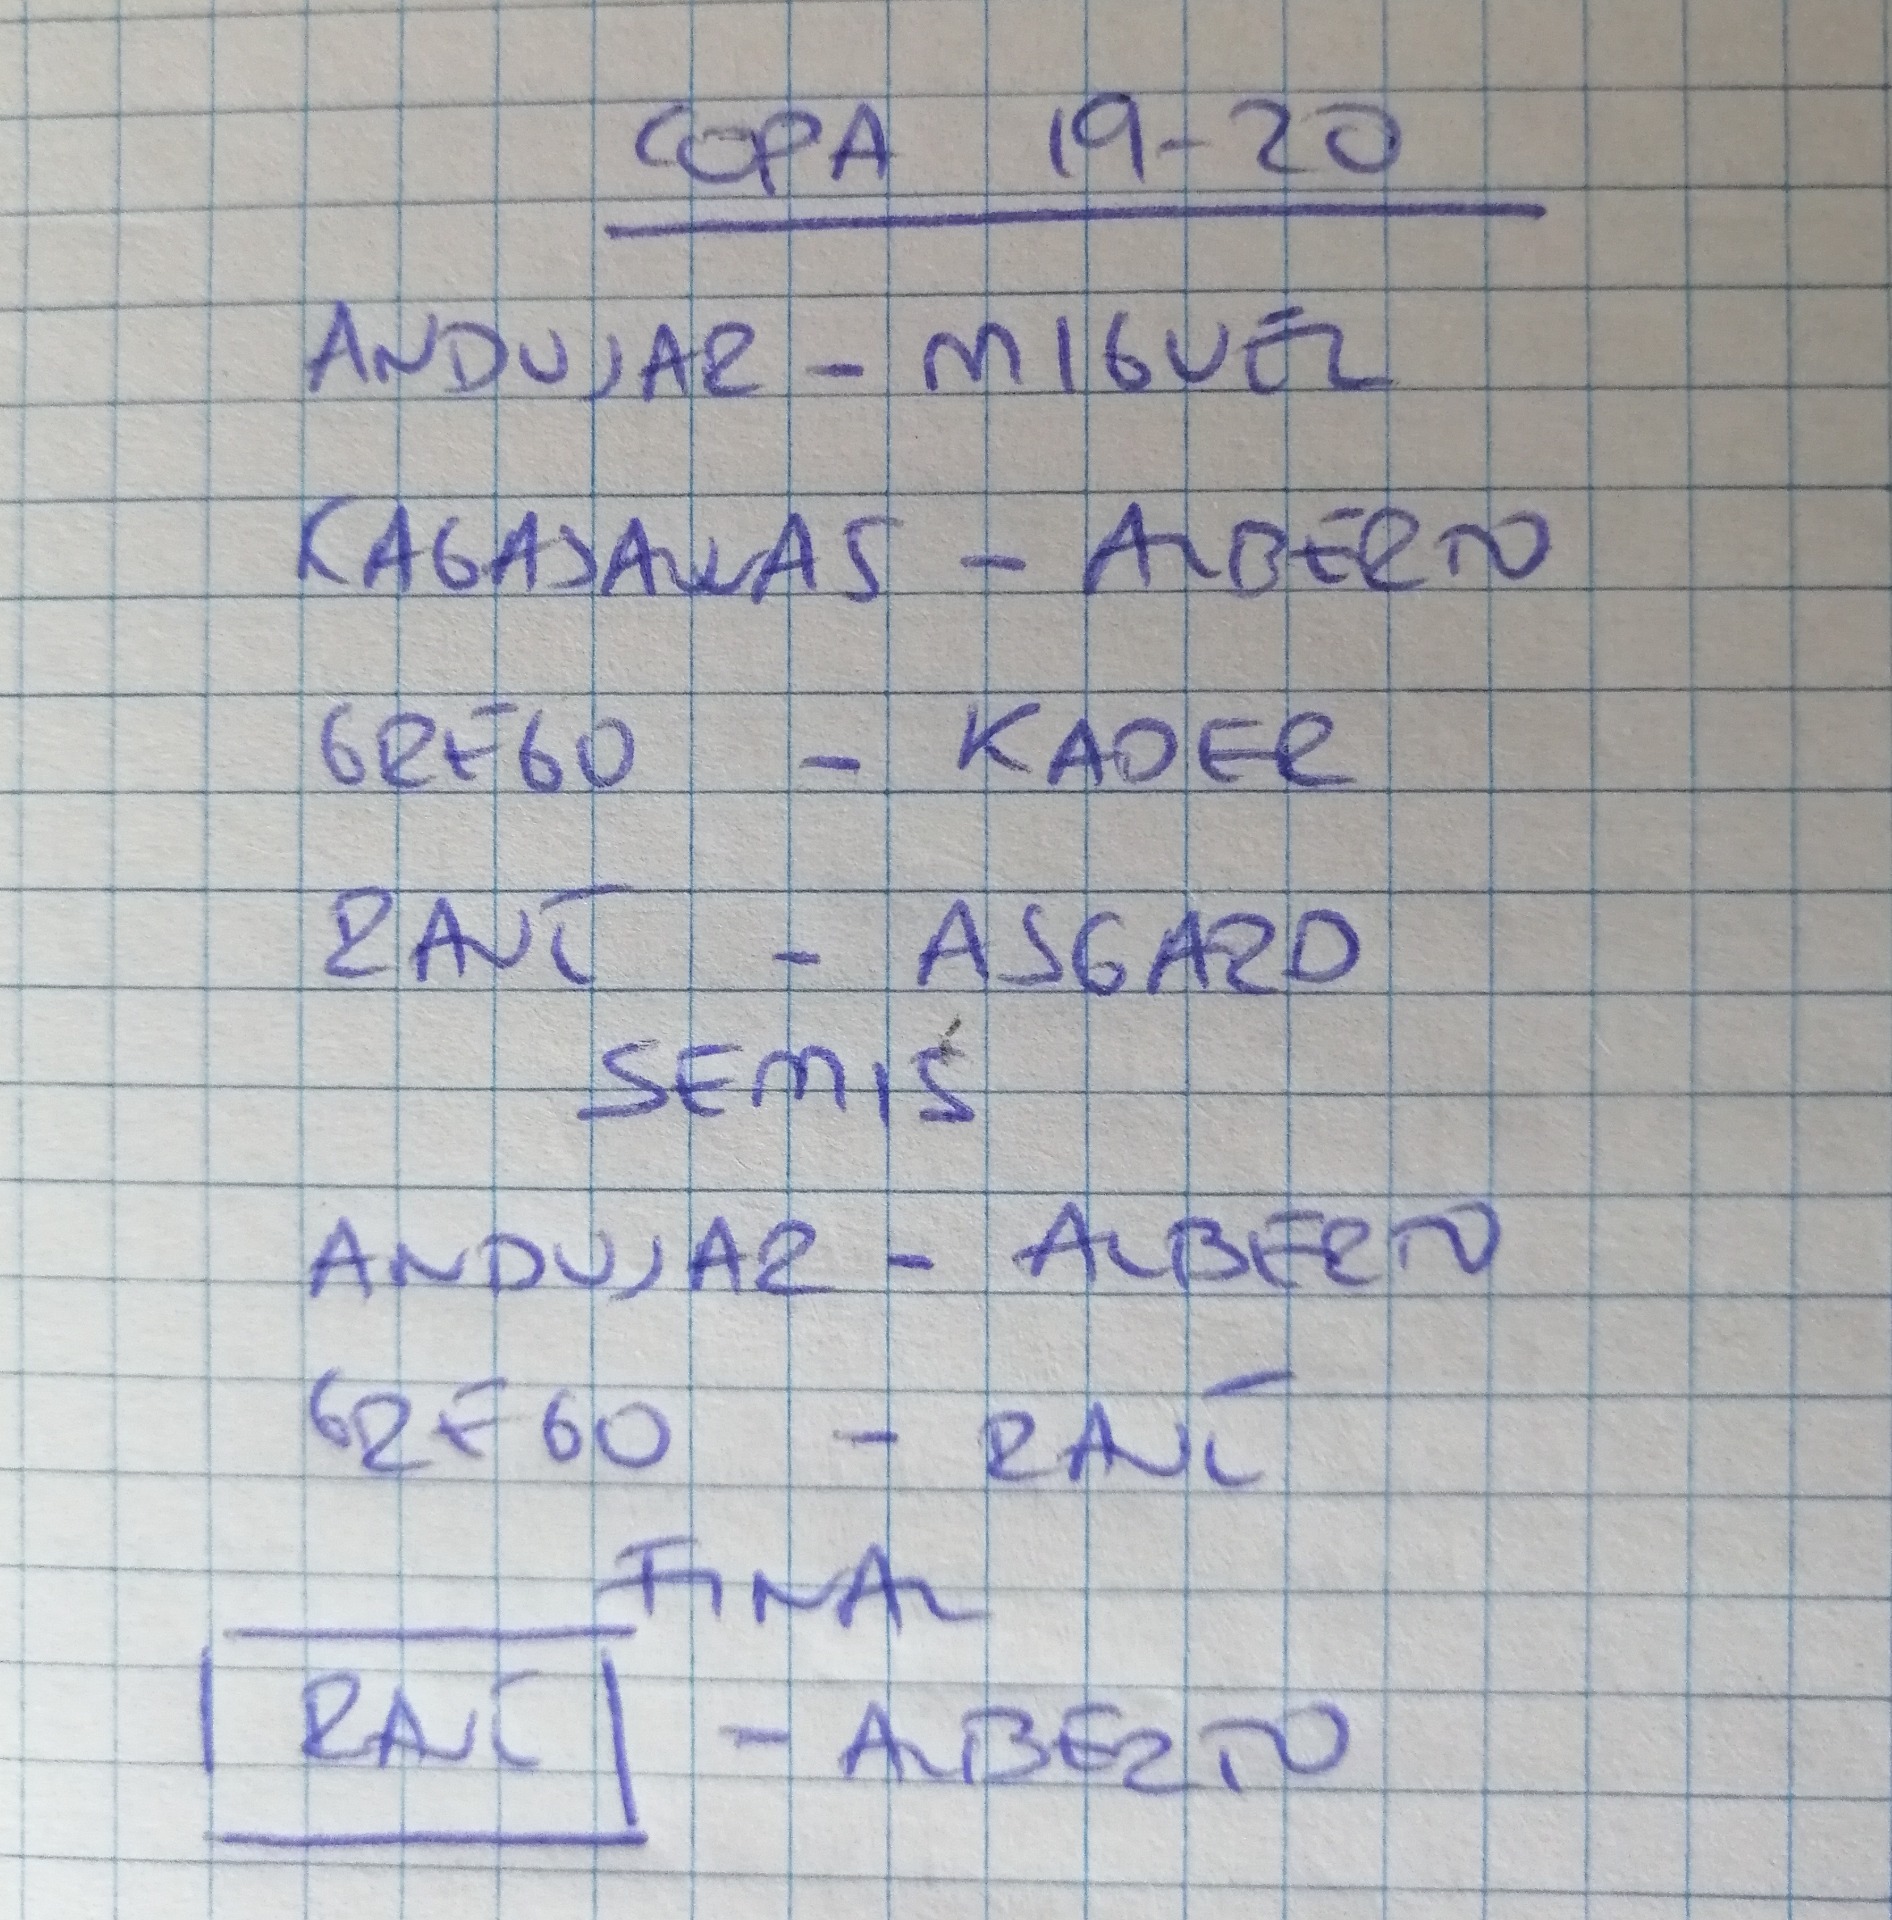 COPA 19-20
ANDUJAR - MIGUEL
KAGAJAWAS - ALBERTO
GREGO - KADER
RAÚL - ASGARD
SEMIS
ANDUJAR - ALBERTO
GREGO - RAÚL
FINAL
RAÚL - ALBERTO